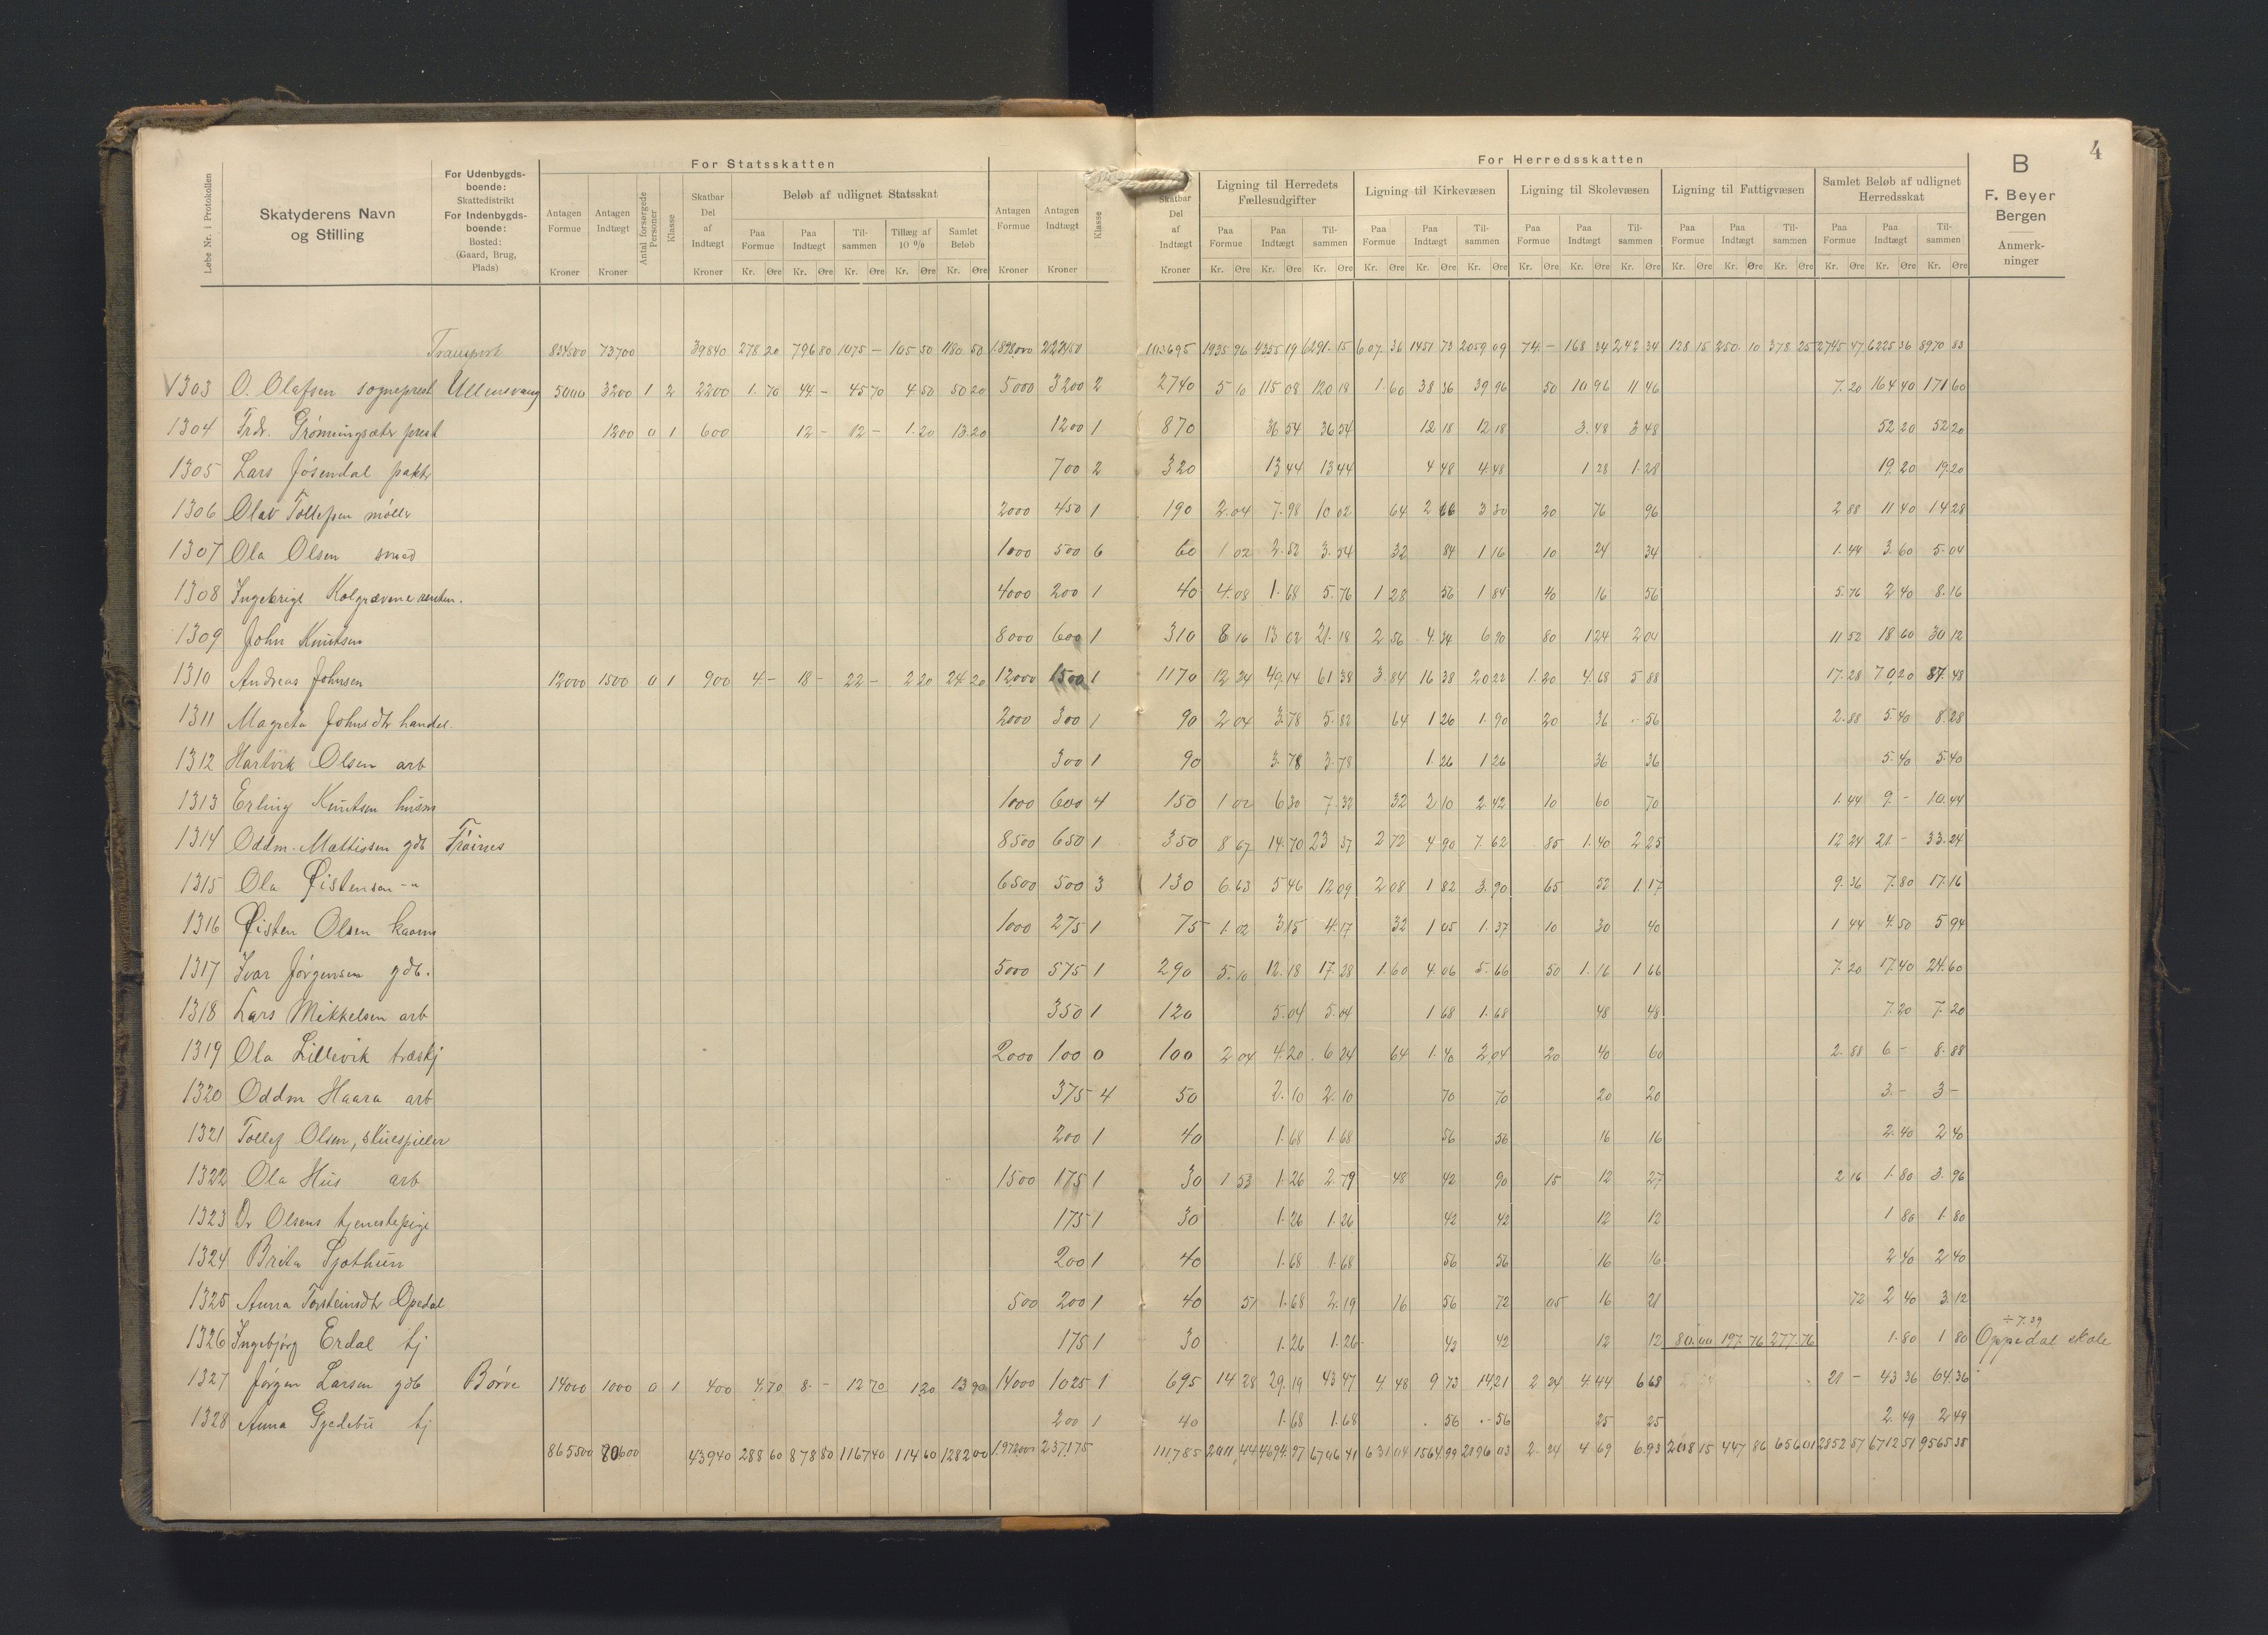 4
For Statsskatten
For Herredsskatten
B
F. Beyer
Bergen
Anmerkninger
Løbe Nr. i Protokollen
Skatyderens Navn og Stilling
For Udenbygdsboende: Skattedistrikt
For Indenbygdsboende: Bosted: (Gaard, Brug, Plads)
Antagen Formue Kroner
Antagen Indtægt Kroner
Antal forsørgede Personer
Klasse
Skatbar Del af Indtægt Kroner
Beløb af udlignet Statsskat
Paa Formue Kr. Øre
Paa Indtægt Kr. Øre
Tilsammen Kr. Øre
Tillæg af 10 % Kr. Øre
Samlet Beløb Kr. Øre
Antagen Formue Kroner
Antagen Indtægt Kroner
Klasse
Skatbar Del af Indtægt Kroner
Ligning til Herredets Fællesudgifter
Paa Formue Kr. Øre Paa Indtægt Kr. Øre Tilsammen Kr. Øre
Ligning til Kirkevæsen
Paa Formue Kr. Øre Paa Indtægt Kr. Øre Tilsammen Kr. Øre
Ligning til Skolevæsen
Paa Formue Kr. Øre Paa Indtægt Kr. Øre Tilsammen Kr. Øre
Ligning til Fattigvæsen
Paa Formue Kr. Øre Paa Indtægt Kr. Øre Tilsammen Kr. Øre
Samlet Beløb af udlignet Herredsskat
Paa Formue Kr. Øre Paa Indtægt Kr. Øre Tilsammen Kr. Øre
Transport 834500 73700 39840 278 20 796 80 1075 - 105 50 1180 50 103695 1935 96 4355 19 6291 15 607 36 1451 73 2059 09 74 - 168 34 242 34 128 15 250 10 378 25 2745 47 6225 36 8970 83
1303 O. Olafsen sogneprest Ullensvang 5000 3200 1 2 2200 1.70 44 - 45 70 4.50 50 20 5000 3200 2 2740 5 10 115 08 120 18 1.60 38 36 39 96 50 10 96 11 46 7.20 164 40 171 60
1304 Frdr. Grønningsæter prest 1200 0 1 600 12 - 12 - 1.20 13.20 1200 1 870 36 54 36 54 12 18 12 18 3.48 3 48 52 20 52 20
1305 Lars Jösendal 700 2 320 13 44 13 44 4 48 4.48 1 28 1.28 19.20 19.20
1306 Olav Tollefsen möller 2000 450 1 190 2.04 7.98 10 02 64 2 66 3 30 20 76 96 2 88 11 40 14 28
1307 Ola Olsen smed 1000 500 6 60 1 02 2.52 3.54 32 84 1 16 10 24 34 1.44 3.60 5.04
1308 Ingebrigt Kolgravene 4000 200 1 40 4.08 1.68 5.76 1 28 56 1 84 40 16 56 5.76 2 40 8.16
1309 John Knutsen 8000 600 1 310 8 16 13 02 21.18 2 56 4.34 6 90 80 1 24 2 04 11 52 18 60 30 12
1310 Andreas Johnsen 12000 1500 0 1 900 4 - 18 - 22 - 2 20 24 20 12000 1500 1 1170 12 24 49.14 61 38 3.84 16 38 20 22 1.20 4.68 5 88 17.28 70 20 87.48
1311 Magreta Johnsdtr handel. 2000 300 1 90 2 04 3.78 5.82 64 1 26 1.90 20 36 56 2.88 5.40 8.28
1312 Hartvik Olsen arb 300 1 90 3.78 3.78 1.26 1 26 36 36 5.40 5.40
1313 Erling Knutsen husm 1000 600 4 150 1 02 6 30 7.32 32 2 10 2.42 10 60 70 1.44 9.- 10.44
1314 Oddm. Mattissen gdb Fröines 8500 650 1 350 8 67 14.70 23 37 2 72 4 90 7.62 85 1.40 2 25 12 24 21 - 33.24
1315 Ola Østensen -" 6500 500 3 130 6.63 5 46 12 09 2 08 1 82 3.90 65 52 1.17 9.36 7.80 17.16
1316 Østen Olsen kaarm 1000 275 1 75 1.02 3 15 4.17 32 1 05 1.37 10 30 40 1 44 4.50 5 94
1317 Ivar Jörgensen gdb. 5000 575 1 290 5.10 12.18 17.28 1.60 4.06 5.66 50 1.16 1 66 7.20 17.40 24.60
1318 Lars Mikkelsen arb 350 1 120 5.04 5.04 1 68 1.68 48 48 7.20 7.20
1319 Ola Lillevik træskj 2000 100 0 100 2 04 4.20 6 24 64 1.40 2.04 20 40 60 2.88 6 - 8.88
1320 Oddm Haara arb 375 4 50 2.10 2.10 70 70 20 20 3.- 3 -
1321 Tollef Olsen, skuespiller 200 1 40 1.68 1.68 56 56 16 16 2.40 2 40
1322 Ola Hus arb 1500 175 1 30 1 53 1.26 2.79 48 42 90 15 12 27 2 16 1.80 3.96
1323 Dr Olsens tjenestepige 175 1 30 1.26 1.26 42 42 12 12 1 80 1.80
1324 Brita Sjothun 200 1 40 1.68 1.68 56 56 16 16 2 40 2 40
1325 Anna Torsteinsdtr Opedal 500 200 1 40 51 1.68 2.19 16 56 72 05 16 21 72 2 40 3.12
÷ 7.39
1326 Ingebjörg Erdal tj 175 1 30 1.26 1.26 42 42 12 12 80.00 197.76 277.76 1.80 1 80 Oppedal skole
1327 Jörgen Larsen gdb Börve 14000 1000 0 1 400 4.70 8. - 12 70 1 20 13 90 14000 1025 1 695 14 28 29.19 43 47 4.48 9 73 14 21 2 24 4.44 6 68 21 - 43 36 64.36
1328 Anna Gjedebu tj 200 1 40 1.68 1.68 56 56 25 25 2.49 2 49
865500 80600 43940 288 60 878 80 1167 40 114 60 1282 00 237175 111785 2011 44 4694.97 6706 41 631 04 1564.99 2196 03 2 24 4 69 6.93 208 15 447 86 656 01 2852 57 6712 51 9565 38